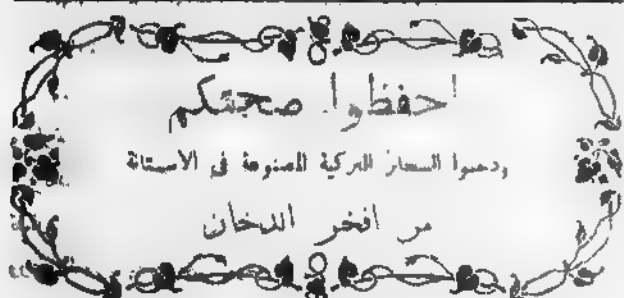 احفظوا صحتكم
ودخنوا السجائر التركية المصنوعة في الاستانة
من افخر الدخان